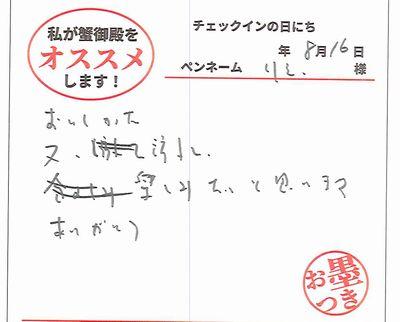 私が蟹御殿を
オススメ
します！
チェックインの日にち
年 8月16日
ペンネーム りえ 様
おいしかった
又、
たいと思います
ありがとう
お墨つき